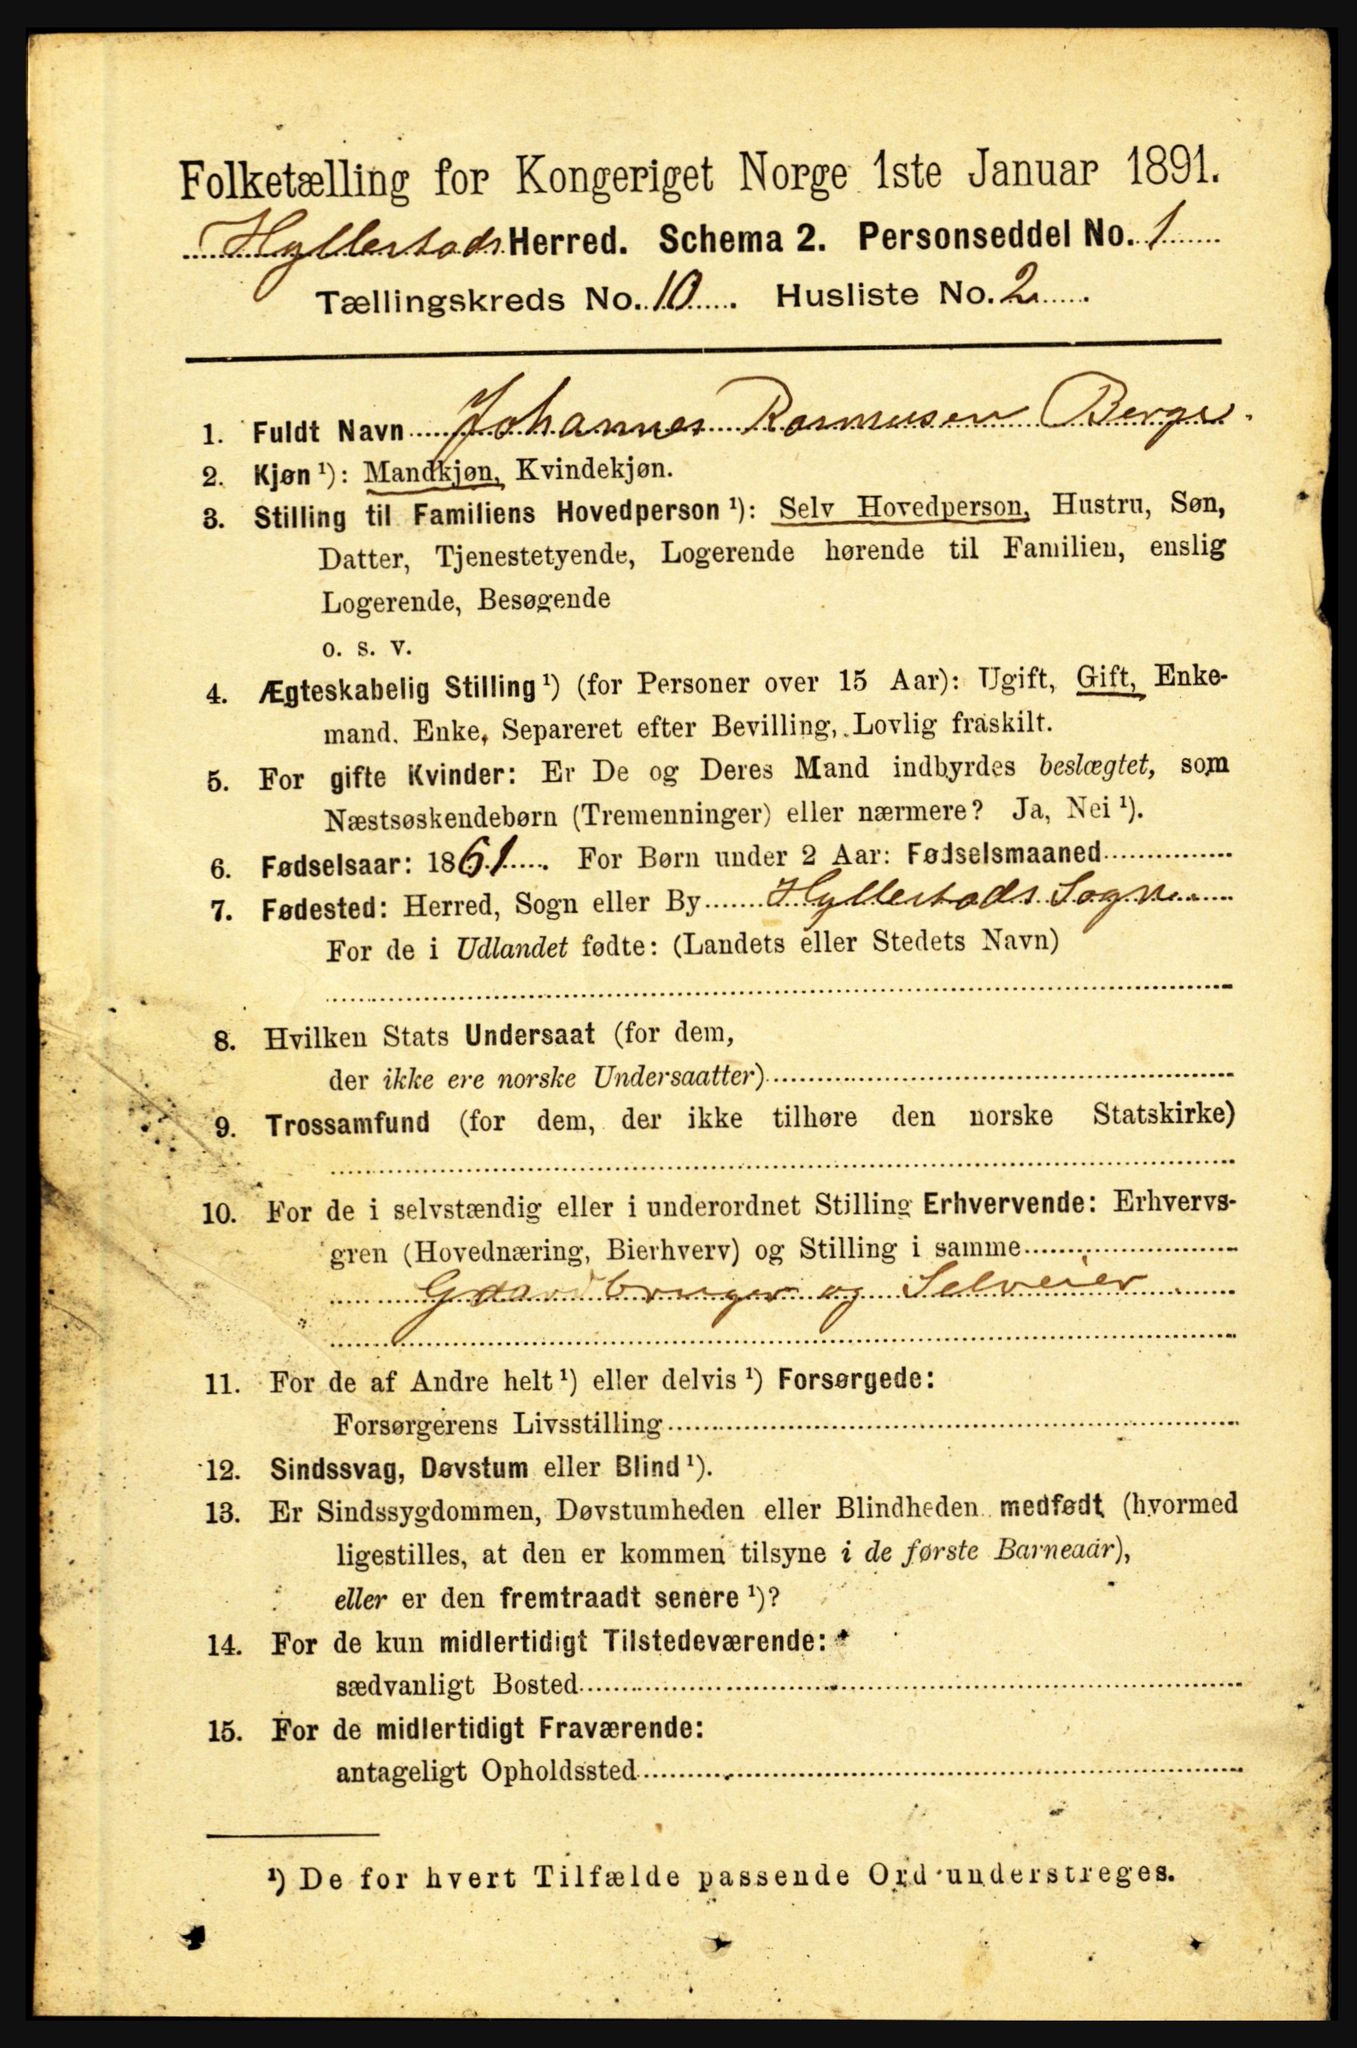 Folketælling for Kongeriget Norge 1ste Januar 1891.
Hyllestads Herred. Schema 2. Personseddel No. 1
Tællingskreds No. 10. Husliste No. 2.
1. Fuldt Navn Johannes Rasmusen Berge.
2. Kjøn ¹): Mandkjøn, Kvindekjøn.
3. Stilling til Familiens Hovedperson ¹): Selv Hovedperson, Hustru, Søn,
Datter, Tjenestetyende, Logerende hørende til Familien, enslig
Logerende, Besøgende
o. s. v.
4. Ægteskabelig Stilling ¹) (for Personer over 15 Aar): Ugift, Gift, Enke-
mand, Enke, Separeret efter Bevilling, Lovlig fraskilt.
5. For gifte Kvinder: Er De og Deres Mand indbyrdes beslægtet, som
Næstsøskendebørn (Tremenninger) eller nærmere? Ja, Nei ¹).
6. Fødselsaar: 1861. For Børn under 2 Aar: Fødselsmaaned
7. Fødested: Herred, Sogn eller By Hyllestads Sogn
For de i Udlandet fødte: (Landets eller Stedets Navn)
8. Hvilken Stats Undersaat (for dem,
der ikke ere norske Undersaatter)
9. Trossamfund (for dem, der ikke tilhøre den norske Statskirke)
10. For de i selvstændig eller i underordnet Stilling Erhvervende: Erhvervs-
gren (Hovednæring, Bierhverv) og Stilling i samme
Gaardbruger og Selveier
11. For de af Andre helt ¹) eller delvis ¹) Forsørgede:
Forsørgerens Livsstilling
12. Sindssvag, Døvstum eller Blind ¹).
13. Er Sindssygdommen, Døvstumheden eller Blindheden medfødt (hvormed
ligestilles, at den er kommen tilsyne i de første Barneaar),
eller er den fremtraadt senere ¹)?
14. For de kun midlertidigt Tilstedeværende:
sædvanligt Bosted
15. For de midlertidigt Fraværende:
antageligt Opholdssted
¹) De for hvert Tilfælde passende Ord understreges.